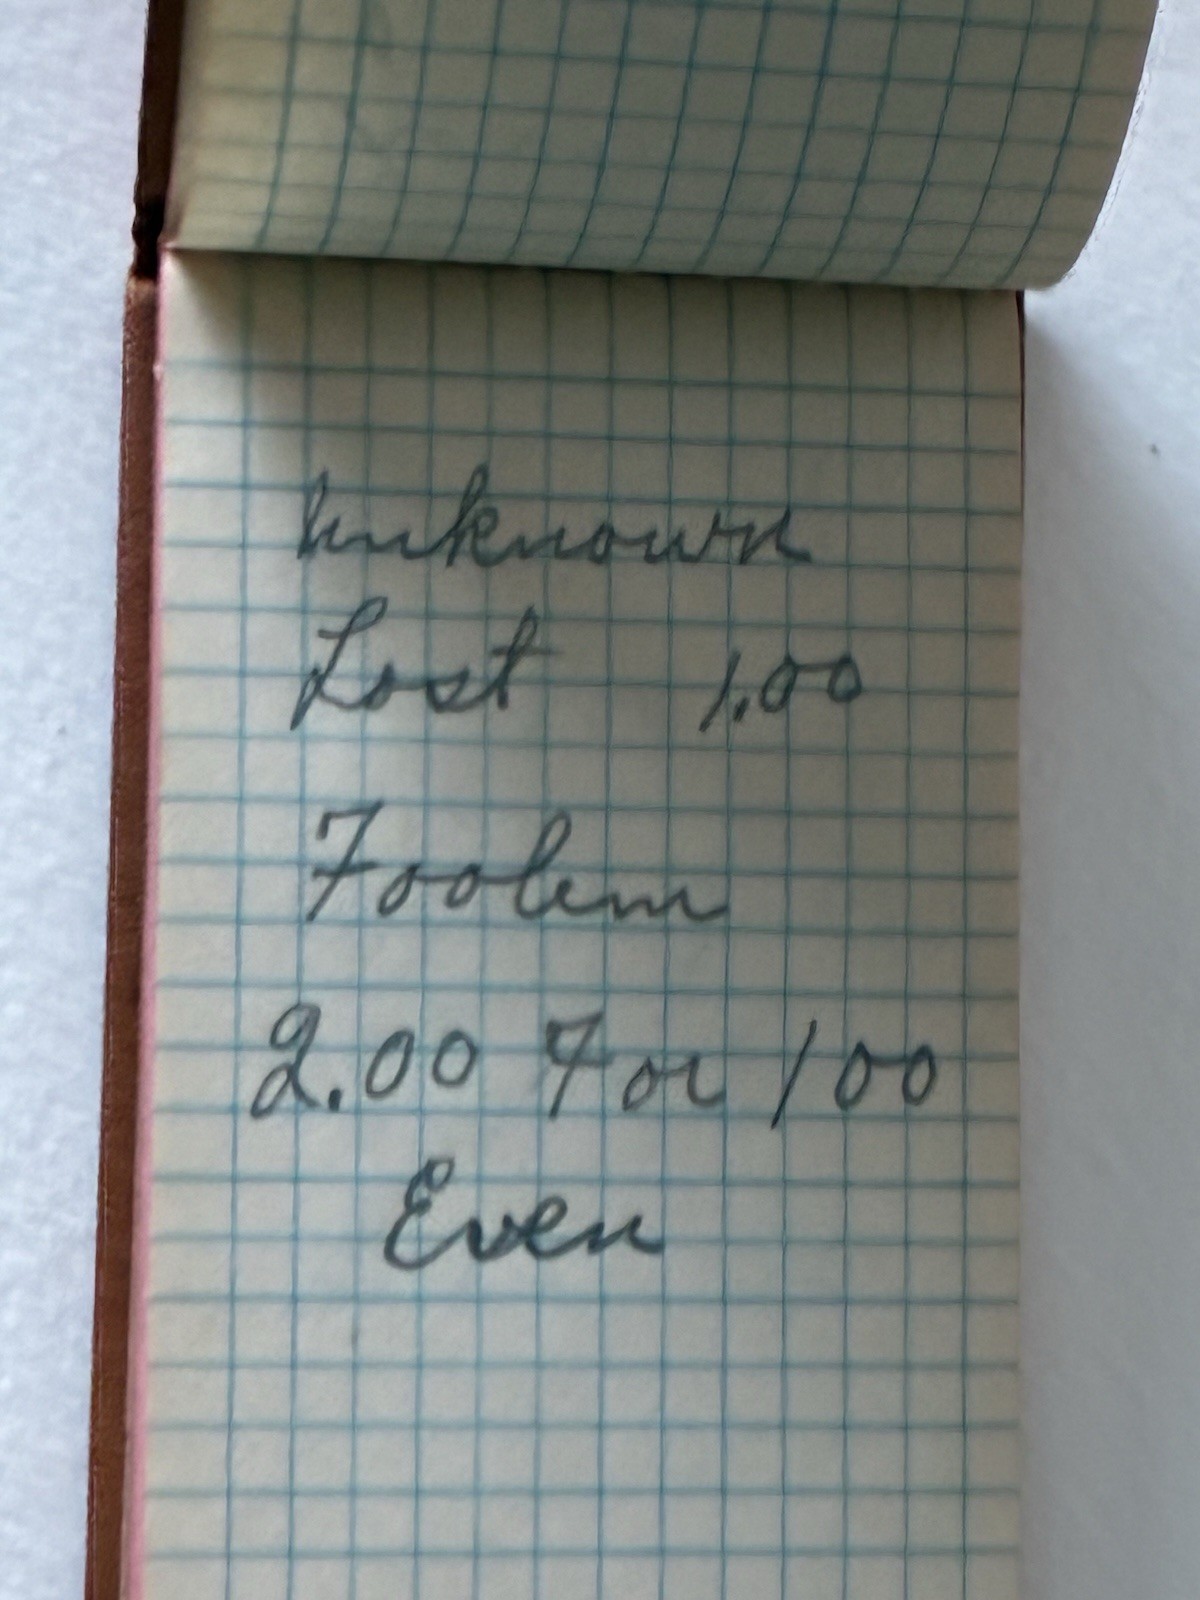 Unknown
Lost 1.00
Foolem
2.00 For 100
Even